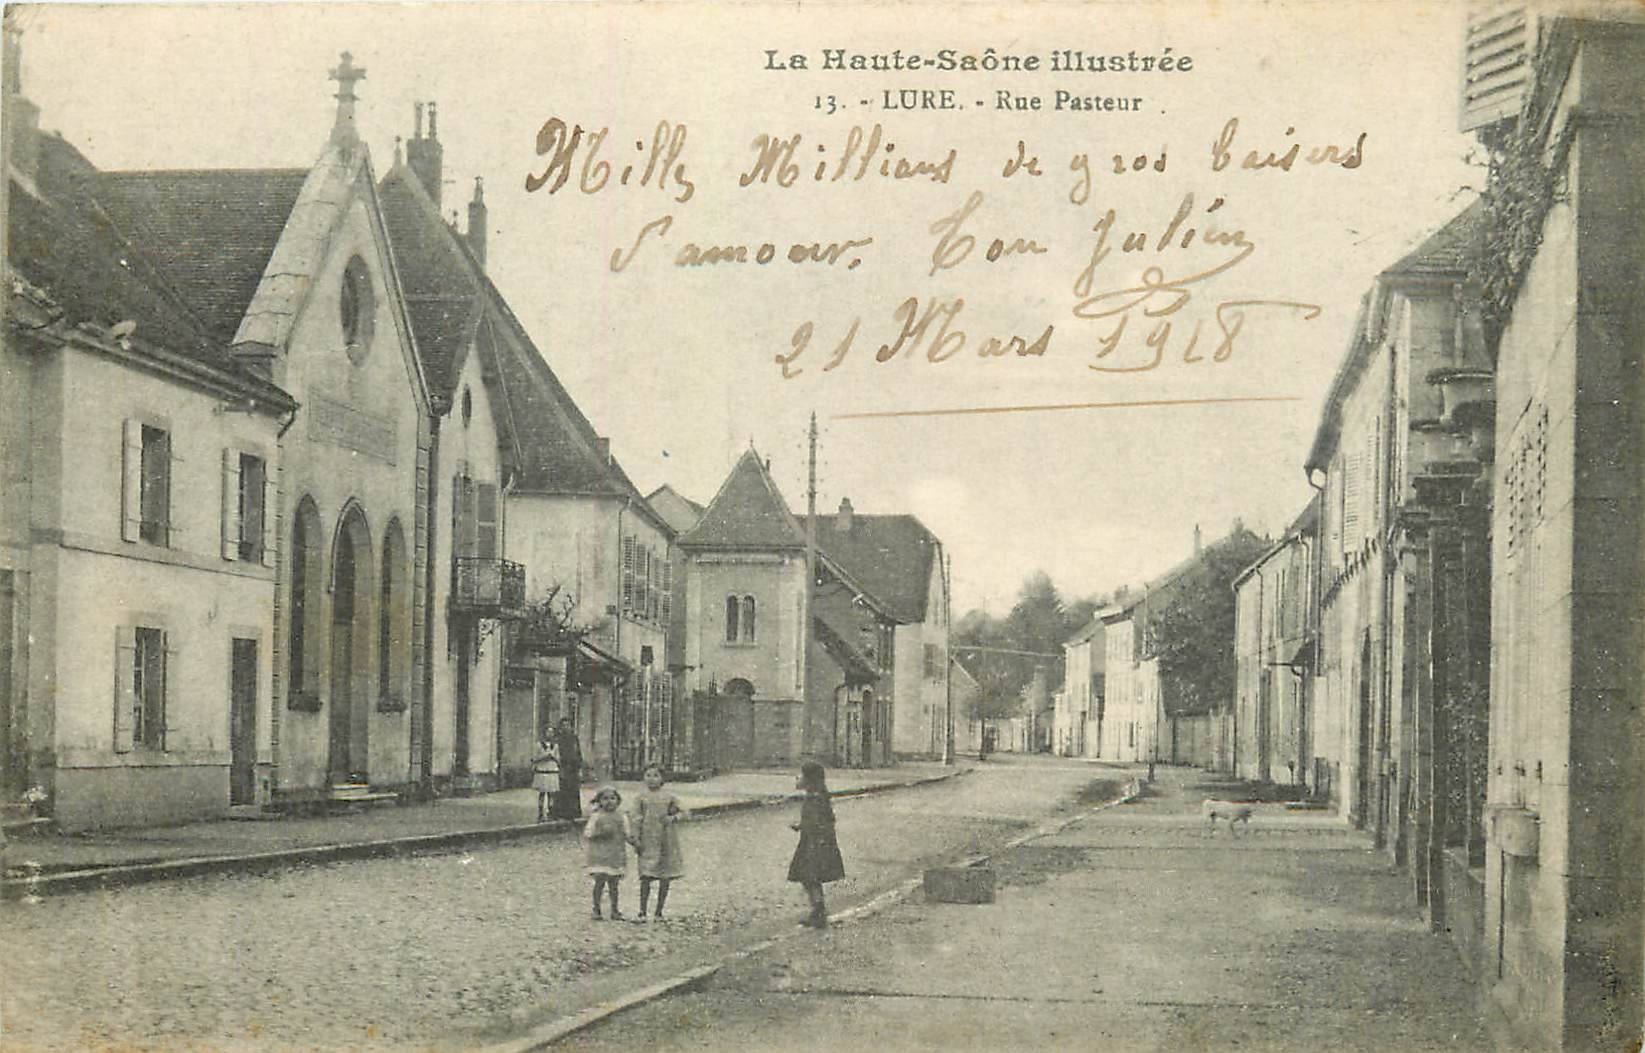 La Haute-Saône illustrée
13. - LURE. - Rue Pasteur
Mille Millions de gros baisers
d'amour. Ton Julien
21 Mars 1918